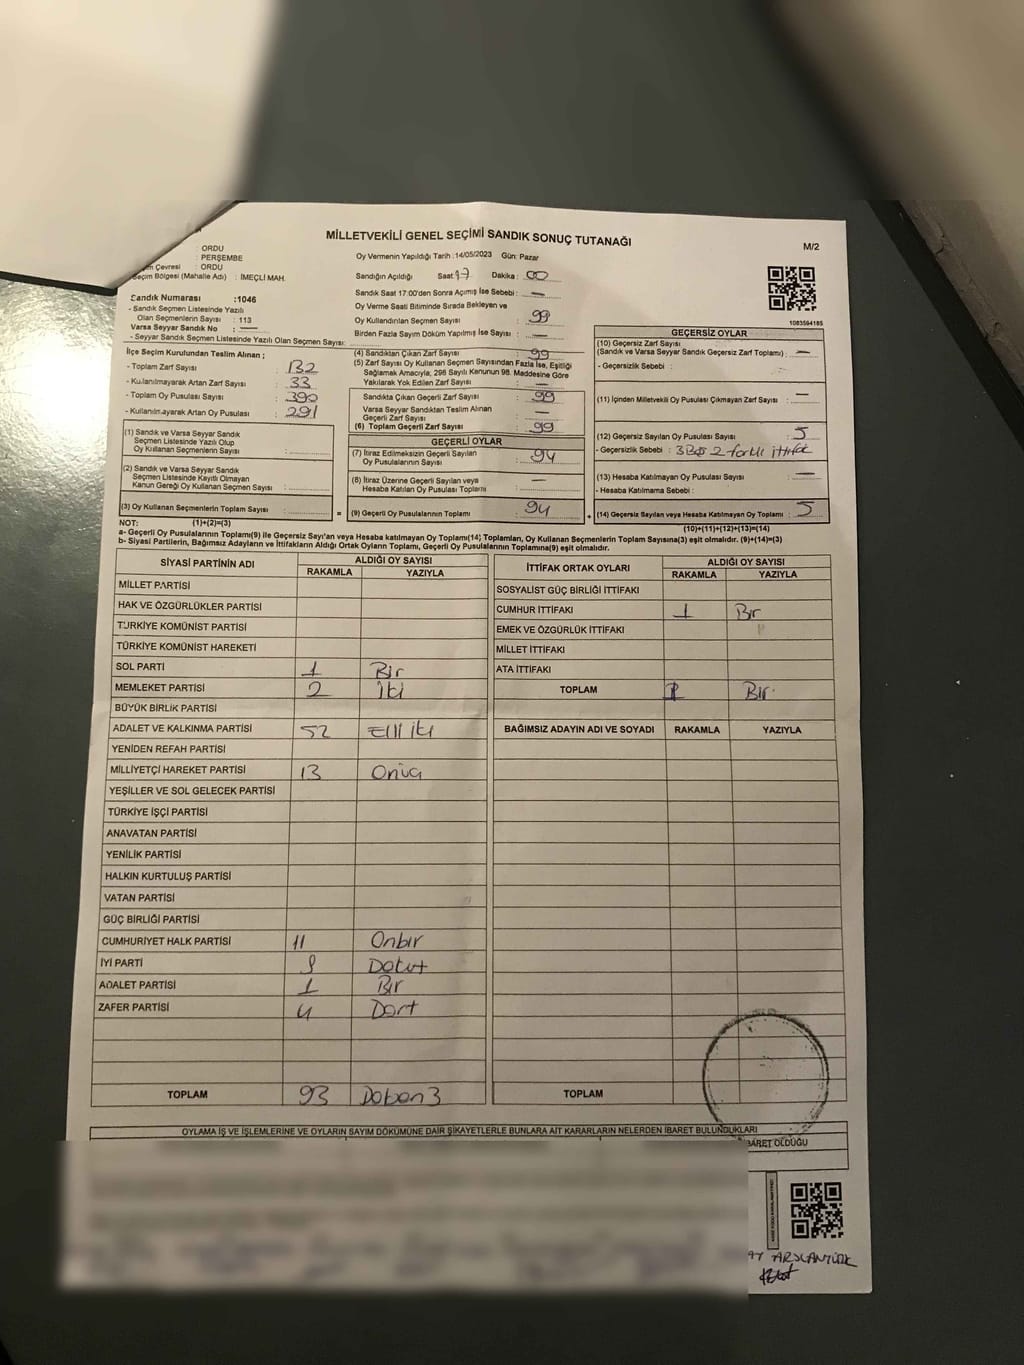 MİLLETVEKİLİ GENEL SEÇİMİ SANDIK SONUÇ TUTANAĞI
M/2
: ORDU
: PERŞEMBE
Çevresi : ORDU
Seçim Bölgesi (Mahalle Adı) : İMEÇLİ MAH.
Oy Vermenin Yapıldığı Tarih : 14/05/2023 Gün: Pazar
Sandığın Açıldığı Saat: 17 Dakika : 00
Sandık Saat 17:00'den Sonra Açılmış İse Sebebi : —
Oy Verme Saati Bitiminde Sırada Bekleyen ve
Oy Kullandırılan Seçmen Sayısı : 99
Birden Fazla Sayım Döküm Yapılmış İse Sayısı : —
Sandık Numarası :1046
- Sandık Seçmen Listesinde Yazılı
Olan Seçmenlerin Sayısı : 113
Varsa Seyyar Sandık No : —
- Seyyar Sandık Seçmen Listesinde Yazılı Olan Seçmen Sayısı:
1083594185
İlçe Seçim Kurulundan Teslim Alınan ;
- Toplam Zarf Sayısı : 132
- Kullanılmayarak Artan Zarf Sayısı : 33
- Toplam Oy Pusulası Sayısı : 390
- Kullanılmayarak Artan Oy Pusulası : 291
(1) Sandık ve Varsa Seyyar Sandık
Seçmen Listesinde Yazılı Olup
Oy Kullanan Seçmenlerin Sayısı :
(2) Sandık ve Varsa Seyyar Sandık
Seçmen Listesinde Kayıtlı Olmayan
Kanun Gereği Oy Kullanan Seçmen Sayısı :
(3) Oy Kullanan Seçmenlerin Toplam Sayısı : =
(4) Sandıktan Çıkan Zarf Sayısı : 99
(5) Zarf Sayısı Oy Kullanan Seçmen Sayısından Fazla İse, Eşitliği
Sağlamak Amacıyla, 298 Sayılı Kanunun 98. Maddesine Göre
Yakılarak Yok Edilen Zarf Sayısı : —
Sandıkta Çıkan Geçerli Zarf Sayısı : 99
Varsa Seyyar Sandıktan Teslim Alınan
Geçerli Zarf Sayısı : —
(6) Toplam Geçerli Zarf Sayısı : 99
GEÇERLİ OYLAR
(7) İtiraz Edilmeksizin Geçerli Sayılan
Oy Pusulalarının Sayısı : 94
(8) İtiraz Üzerine Geçerli Sayılan veya
Hesaba Katılan Oy Pusulası Toplamı : —
(9) Geçerli Oy Pusulalarının Toplamı : 94 +
GEÇERSİZ OYLAR
(10) Geçersiz Zarf Sayısı
(Sandık ve Varsa Seyyar Sandık Geçersiz Zarf Toplamı) : —
- Geçersizlik Sebebi :
(11) İçinden Milletvekili Oy Pusulası Çıkmayan Zarf Sayısı : —
(12) Geçersiz Sayılan Oy Pusulası Sayısı : 5
- Geçersizlik Sebebi : 3 Boş 2 farklı ittifak
(13) Hesaba Katılmayan Oy Pusulası Sayısı : —
- Hesaba Katılmama Sebebi :
(14) Geçersiz Sayılan veya Hesaba Katılmayan Oy Toplamı : 5
NOT: (1)+(2)=(3)
(10)+(11)+(12)+(13)=(14)
a- Geçerli Oy Pusulalarının Toplamı(9) ile Geçersiz Sayılan veya Hesaba katılmayan Oy Toplamı(14) Toplamları, Oy Kullanan Seçmenlerin Toplam Sayısına(3) eşit olmalıdır. (9)+(14)=(3)
b- Siyasi Partilerin, Bağımsız Adayların ve İttifakların Aldığı Ortak Oyların Toplamı, Geçerli Oy Pusulalarının Toplamına(9) eşit olmalıdır.
SİYASİ PARTİNİN ADI ALDIĞI OY SAYISI
RAKAMLA YAZIYLA
MİLLET PARTİSİ
HAK VE ÖZGÜRLÜKLER PARTİSİ
TÜRKİYE KOMÜNİST PARTİSİ
TÜRKİYE KOMÜNİST HAREKETİ
SOL PARTİ 1 Bir
MEMLEKET PARTİSİ 2 İki
BÜYÜK BİRLİK PARTİSİ
ADALET VE KALKINMA PARTİSİ 52 Elli iki
YENİDEN REFAH PARTİSİ
MİLLİYETÇİ HAREKET PARTİSİ 13 Onüç
YEŞİLLER VE SOL GELECEK PARTİSİ
TÜRKİYE İŞÇİ PARTİSİ
ANAVATAN PARTİSİ
YENİLİK PARTİSİ
HALKIN KURTULUŞ PARTİSİ
VATAN PARTİSİ
GÜÇ BİRLİĞİ PARTİSİ
CUMHURİYET HALK PARTİSİ 11 Onbir
İYİ PARTİ 9 Dokuz
ADALET PARTİSİ 1 Bir
ZAFER PARTİSİ 4 Dört
TOPLAM 93 Doksan 3
İTTİFAK ORTAK OYLARI ALDIĞI OY SAYISI
RAKAMLA YAZIYLA
SOSYALİST GÜÇ BİRLİĞİ İTTİFAKI
CUMHUR İTTİFAKI 1 Bir
EMEK VE ÖZGÜRLÜK İTTİFAKI
MİLLET İTTİFAKI
ATA İTTİFAKI
TOPLAM 1 Bir
BAĞIMSIZ ADAYIN ADI VE SOYADI RAKAMLA YAZIYLA
TOPLAM
OYLAMA İŞ VE İŞLEMLERİNE VE OYLARIN SAYIM DÖKÜMÜNE DAİR ŞİKAYETLERLE BUNLARA AİT KARARLARIN NELERDEN İBARET BULUNDUKLARI
İBARET OLDUĞU
ARSLANTÜRK